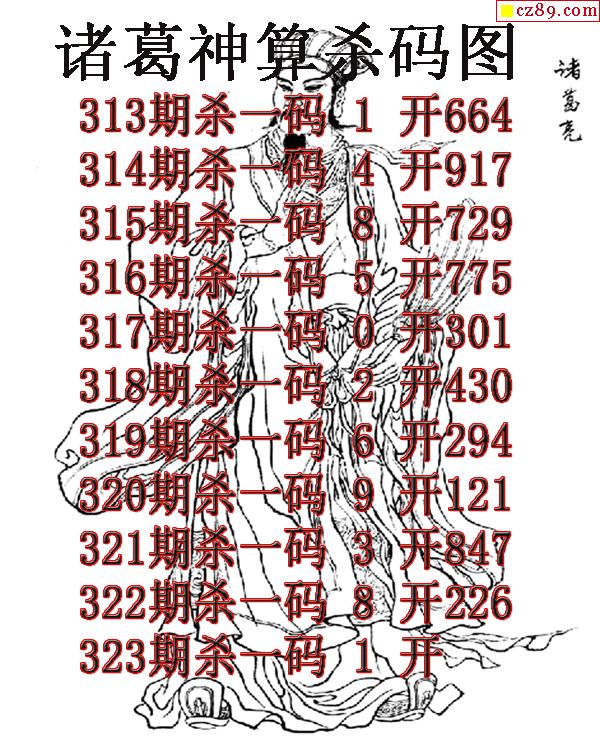 cz89.com
诸葛神算杀码图
诸葛亮
313期杀一码 1 开664
314期杀一码 4 开917
315期杀一码 8 开729
316期杀一码 5 开775
317期杀一码 0 开301
318期杀一码 2 开430
319期杀一码 6 开294
320期杀一码 9 开121
321期杀一码 3 开847
322期杀一码 8 开226
323期杀一码 1 开